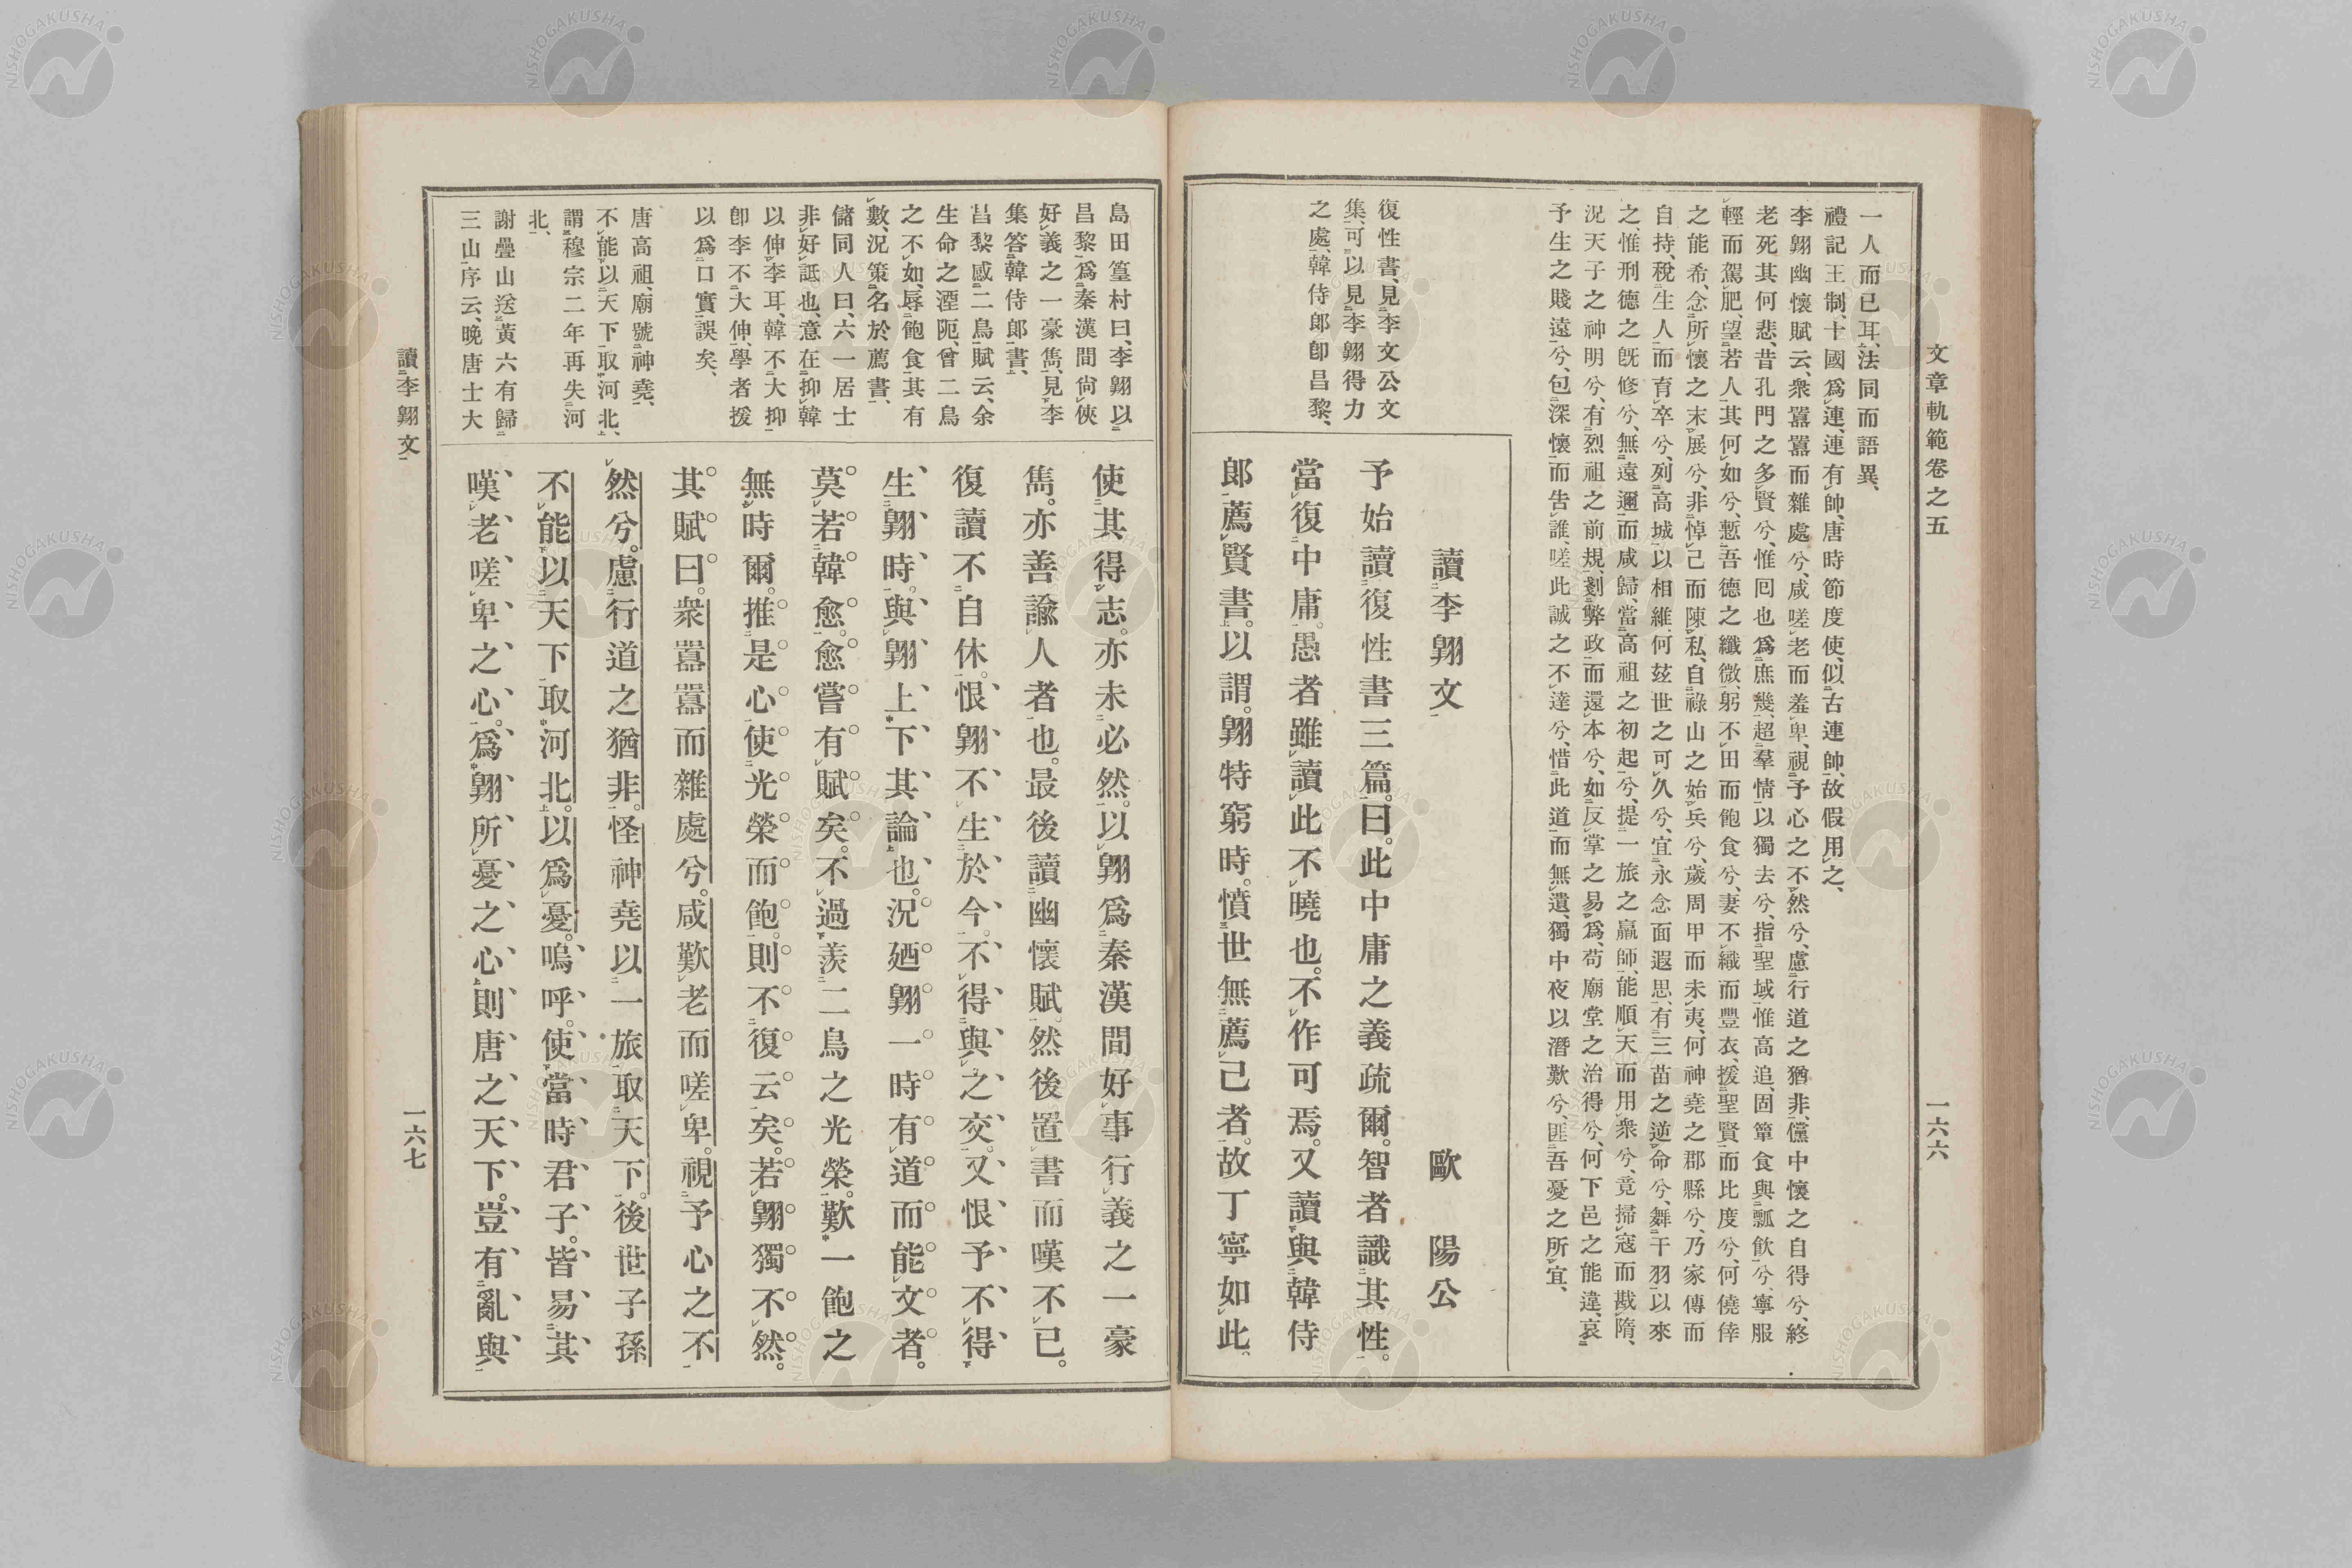 文章軌範卷之五
一六六
一人而已耳、法同而語異、
禮記王制、十國爲連、連有帥、唐時節度使、似古連帥、故假用之、
李翺幽懷賦云、衆囂囂而雜處兮、咸嗟老而羞卑、視予心之不然兮、慮行道之猶非、儻中懷之自得兮、終
老死其何悲、昔孔門之多賢兮、惟囘也爲庶幾、超羣情以獨去兮、指聖域惟高追、固簞食與瓢飮兮、寧服
輕而駕肥、望若人其何如兮、慙吾德之纖微、躬不田而飽食兮、妻不織而豐衣、援聖賢而比度兮、何僥倖
之能希、念所懷之末展兮、非悼己而陳私、自祿山之始兵兮、歲周甲而未夷、何神堯之郡縣兮、乃家傳而
自持、稅生人而育卒兮、列高城以相維、何玆世之可久兮、宜永念而遐思、有三苗之逆命兮、舞干羽以來
之、惟刑德之旣修兮、無遠邇而咸歸、當高祖之初起兮、提一旅之羸師、能順天而用衆兮、竟掃寇而戡隋、
況天子之神明兮、有烈祖之前規、剗弊政而還本兮、如反掌之易爲、苟廟堂之治得兮、何下邑之能違、哀
予生之賤遠兮、包深懷而吿誰、嗟此誠之不達兮、惜此道而無遺、獨中夜以潛歎兮、匪吾憂之所宜、
復性書、見李文公文
集、可以見李翺得力
之處、韓侍郎卽昌黎、
讀李翺文
歐陽公
予始讀復性書三篇。曰。此中庸之義疏爾。智者識其性。
當復中庸。愚者雖讀此不曉也。不作可焉。又讀與韓侍
郎薦賢書。以謂。翺特窮時。憤世無薦己者。故丁寧如此。
島田篁村曰、李翺以
昌黎爲秦漢間尙俠
好義之一豪雋、見李
集答韓侍郎書、
昌黎感二鳥賦云、余
生命之湮阨、曾二鳥
之不如、辱飽食其有
數、況策名於薦書、
儲同人曰、六一居士
非好詆也、意在抑韓
以伸李耳、韓不大抑
卽李不大伸、學者援
以爲口實誤矣、
唐高祖、廟號神堯、
不能以天下取河北、
謂穆宗二年再失河
北、
謝疊山送黃六有歸
三山序云、晚唐士大
使其得志。亦未必然。以翺爲秦漢間好事行義之一豪
雋。亦善諭人者也。最後讀幽懷賦。然後置書而嘆不已。
復讀不自休。恨翺不生於今。不得與之交。又恨予不得
生翺時。與翺上下其論也。況廼翺一時有道而能文者。
莫若韓愈。愈嘗有賦矣。不過羨二鳥之光榮。歎一飽之
無時爾。推是心使光榮而飽。則不復云矣。若翺獨不然。
其賦曰。衆囂囂而雜處兮。咸歎老而嗟卑。視予心之不
然兮。慮行道之猶非。怪神堯以一旅取天下。後世子孫
不能以天下取河北。以爲憂。嗚呼。使當時君子。皆易其
嘆老嗟卑之心。爲翺所憂之心。則唐之天下。豈有亂與
讀李翺文
一六七